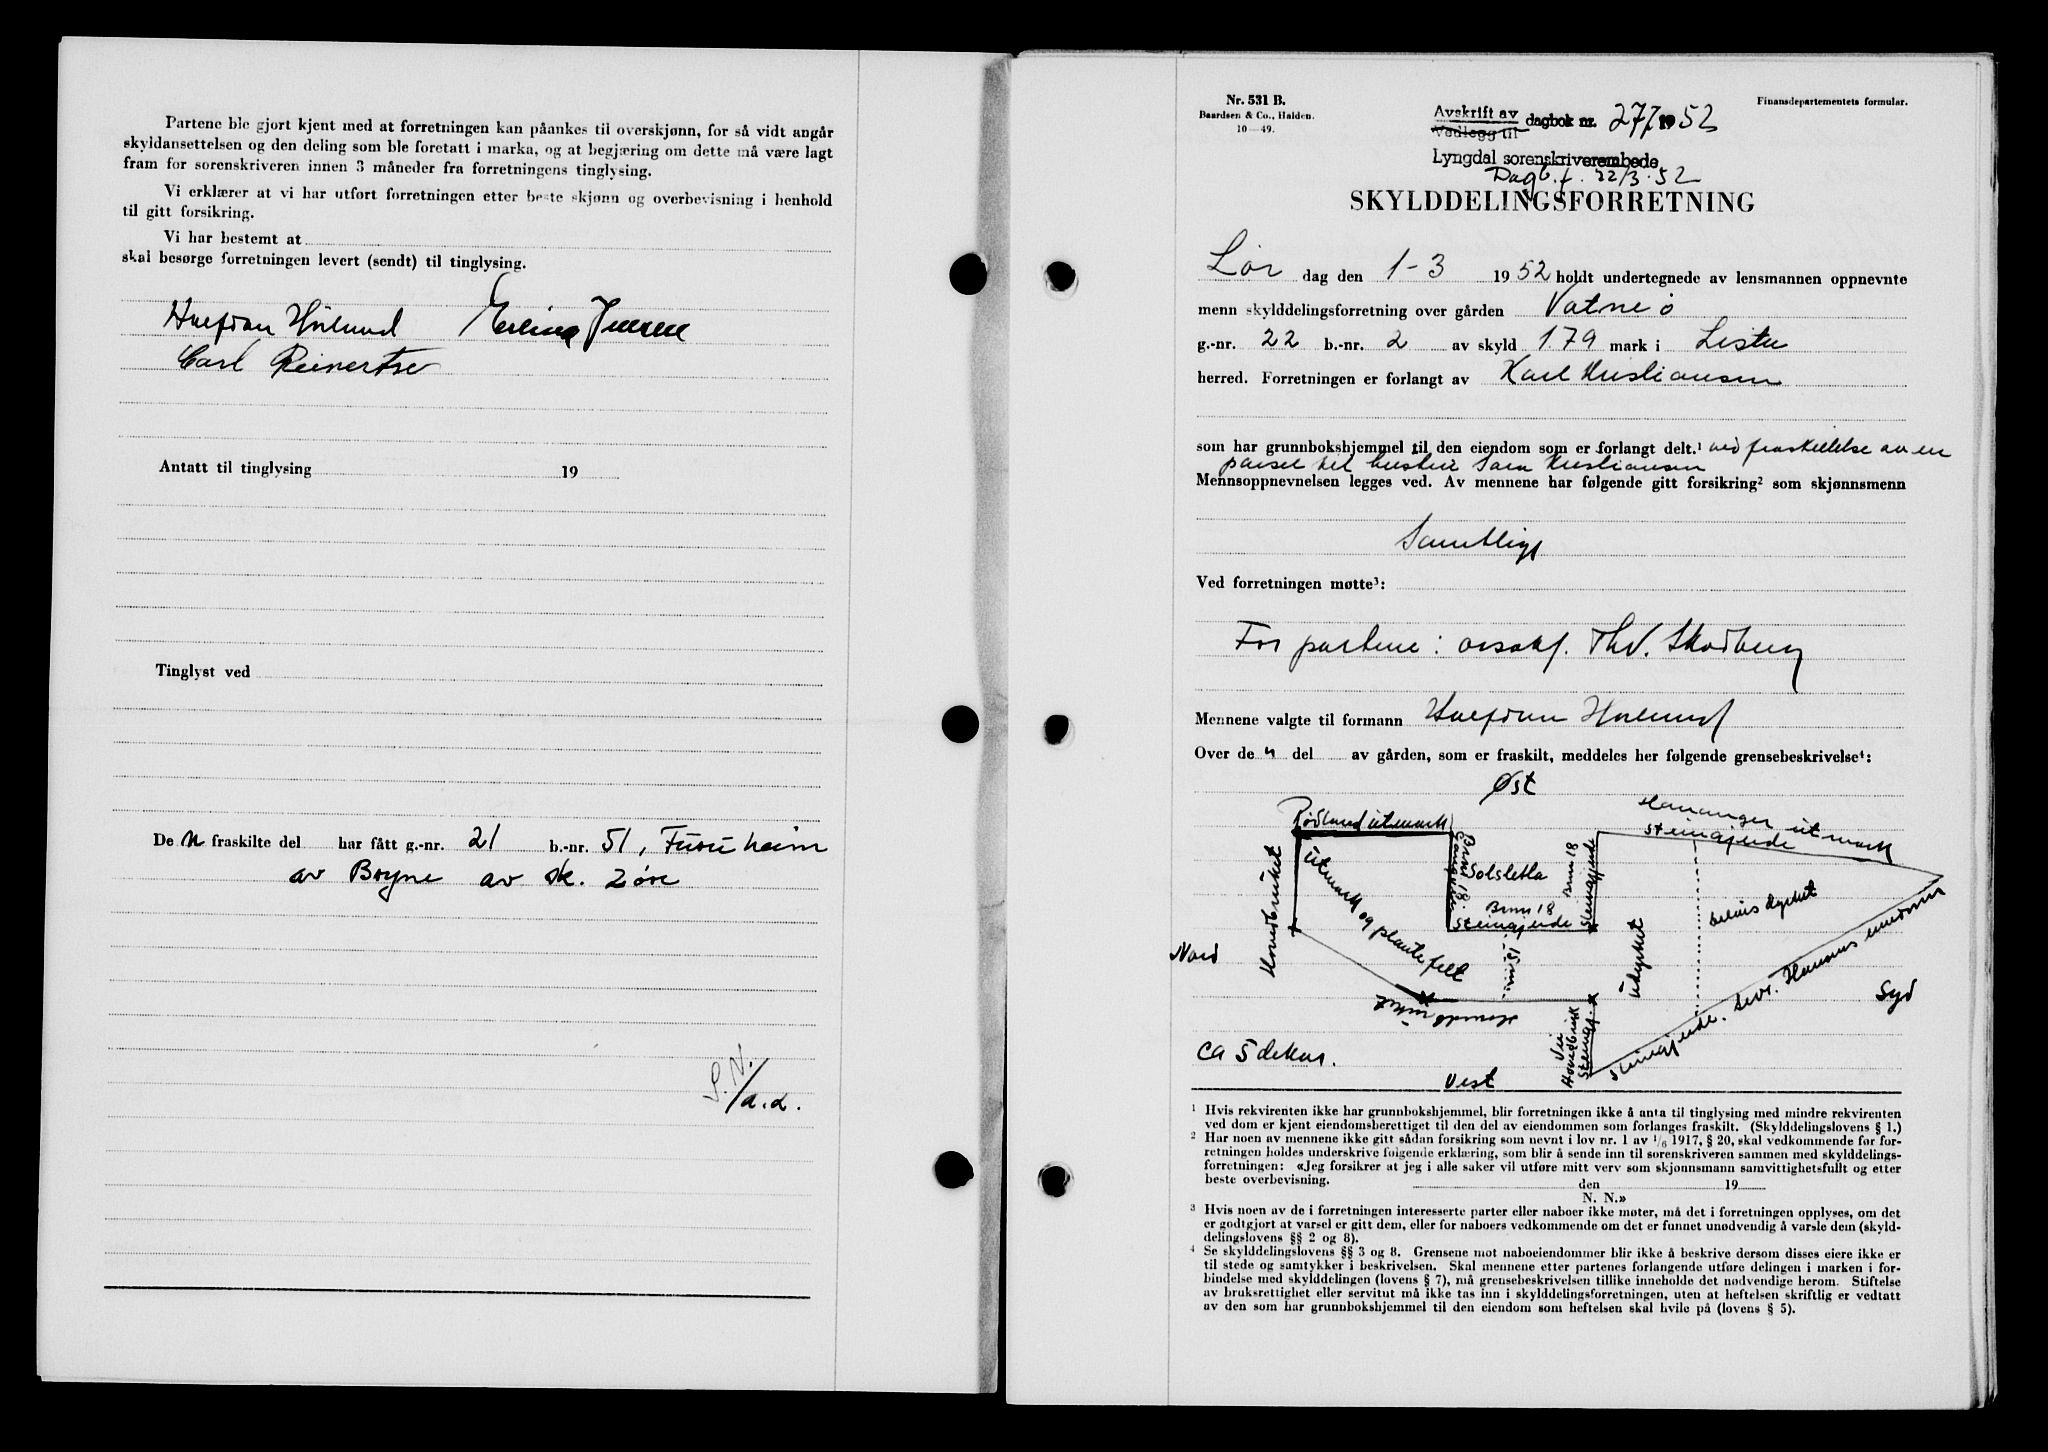 Partene ble gjort kjent med at forretningen kan påankes til overskjønn, for så vidt angår
skyldansettelsen og den deling som ble foretatt i marka, og at begjæring om dette må være lagt
fram for sorenskriveren innen 3 måneder fra forretningens tinglysing.
Vi erklærer at vi har utført forretningen etter beste skjønn og overbevisning i henhold
til gitt forsikring.
Vi har bestemt at
skal besørge forretningen levert (sendt) til tinglysing.
Erling Jensen
Carl Reinertsen
Antatt til tinglysing 19
Tinglyst ved
De n fraskilte del har fått g.-nr. 21 b.-nr. 51, Furuheim
av Bryne av sk. 2 øre
S.N.
/a.d.
Nr. 531 B.
Baardsen & Co., Halden.
10—49.
Finansdepartementets formular.
Avskrift av
Vedlegg til dagbok nr. 277 1952
Lyngdal sorenskriverembede
Dagb. f. 22/3. 52
SKYLDDELINGSFORRETNING
Lør dag den 1-3 1952 holdt undertegnede av lensmannen oppnevnte
menn skylddelingsforretning over gården Vatne ø
g.-nr. 22 b.-nr. 2 av skyld 179 mark i Lista
herred. Forretningen er forlangt av Karl Kristiansen
som har grunnbokshjemmel til den eiendom som er forlangt delt.¹ ved fraskillelse av en
parsel til hustru Sara Kristiansen
Mennsoppnevnelsen legges ved. Av mennene har følgende gitt forsikring² som skjønnsmenn
Samtlige
Ved forretningen møtte³:
For partene: o.r.sakf. Thv. Skodberg
Mennene valgte til formann
Over de n del av gården, som er fraskilt, meddeles her følgende grensebeskrivelse⁴:
Øst
Rødland utmark
utmark
steingjerde
Hovedbruket
Utmark og plantefelt
Brnr 18
Solsletta
Brnr 18
Steingjerde
Brnr 18
Steingjerde
Udyrket
Delvis dyrket
Nord
Syd
Vei
Hovedbruk
Steingj.
Steingjerde.
ca 5 dekar.
Vest
¹ Hvis rekvirenten ikke har grunnbokshjemmel, blir forretningen ikke å anta til tinglysing med mindre rekvirenten
ved dom er kjent eiendomsberettiget til den del av eiendommen som forlanges fraskilt. (Skylddelingslovens § 1.)
² Har noen av mennene ikke gitt sådan forsikring som nevnt i lov nr. 1 av ¹/₆ 1917, § 20, skal vedkommende før for-
retningen holdes underskrive følgende erklæring, som blir å sende inn til sorenskriveren sammen med skylddelings-
forretningen: «Jeg forsikrer at jeg i alle saker vil utføre mitt verv som skjønnsmann samvittighetsfullt og etter
beste overbevisning. den 19
N. N.»
³ Hvis noen av de i forretningen interesserte parter eller naboer ikke møter, må det i forretningen opplyses, om det
er godtgjort at varsel er gitt dem, eller for naboers vedkommende om det er funnet unødvendig å varsle dem (skyld-
delingslovens §§ 2 og 8).
⁴ Se skylddelingslovens §§ 3 og 8. Grensene mot naboeiendommer blir ikke å beskrive dersom disses eiere ikke er
til stede og samtykker i beskrivelsen. Skal mennene etter partenes forlangende utføre delingen i marken i for-
bindelse med skylddelingen (lovens § 7), må grensebeskrivelsen tillike inneholde det nødvendige herom. Stiftelse
av bruksrettighet eller servitut må ikke tas inn i skylddelingsforretningen, uten at heftelsen skriftlig er vedtatt
av den som har grunnbokshjemmel til den eiendom som heftelsen skal hvile på (lovens § 5).